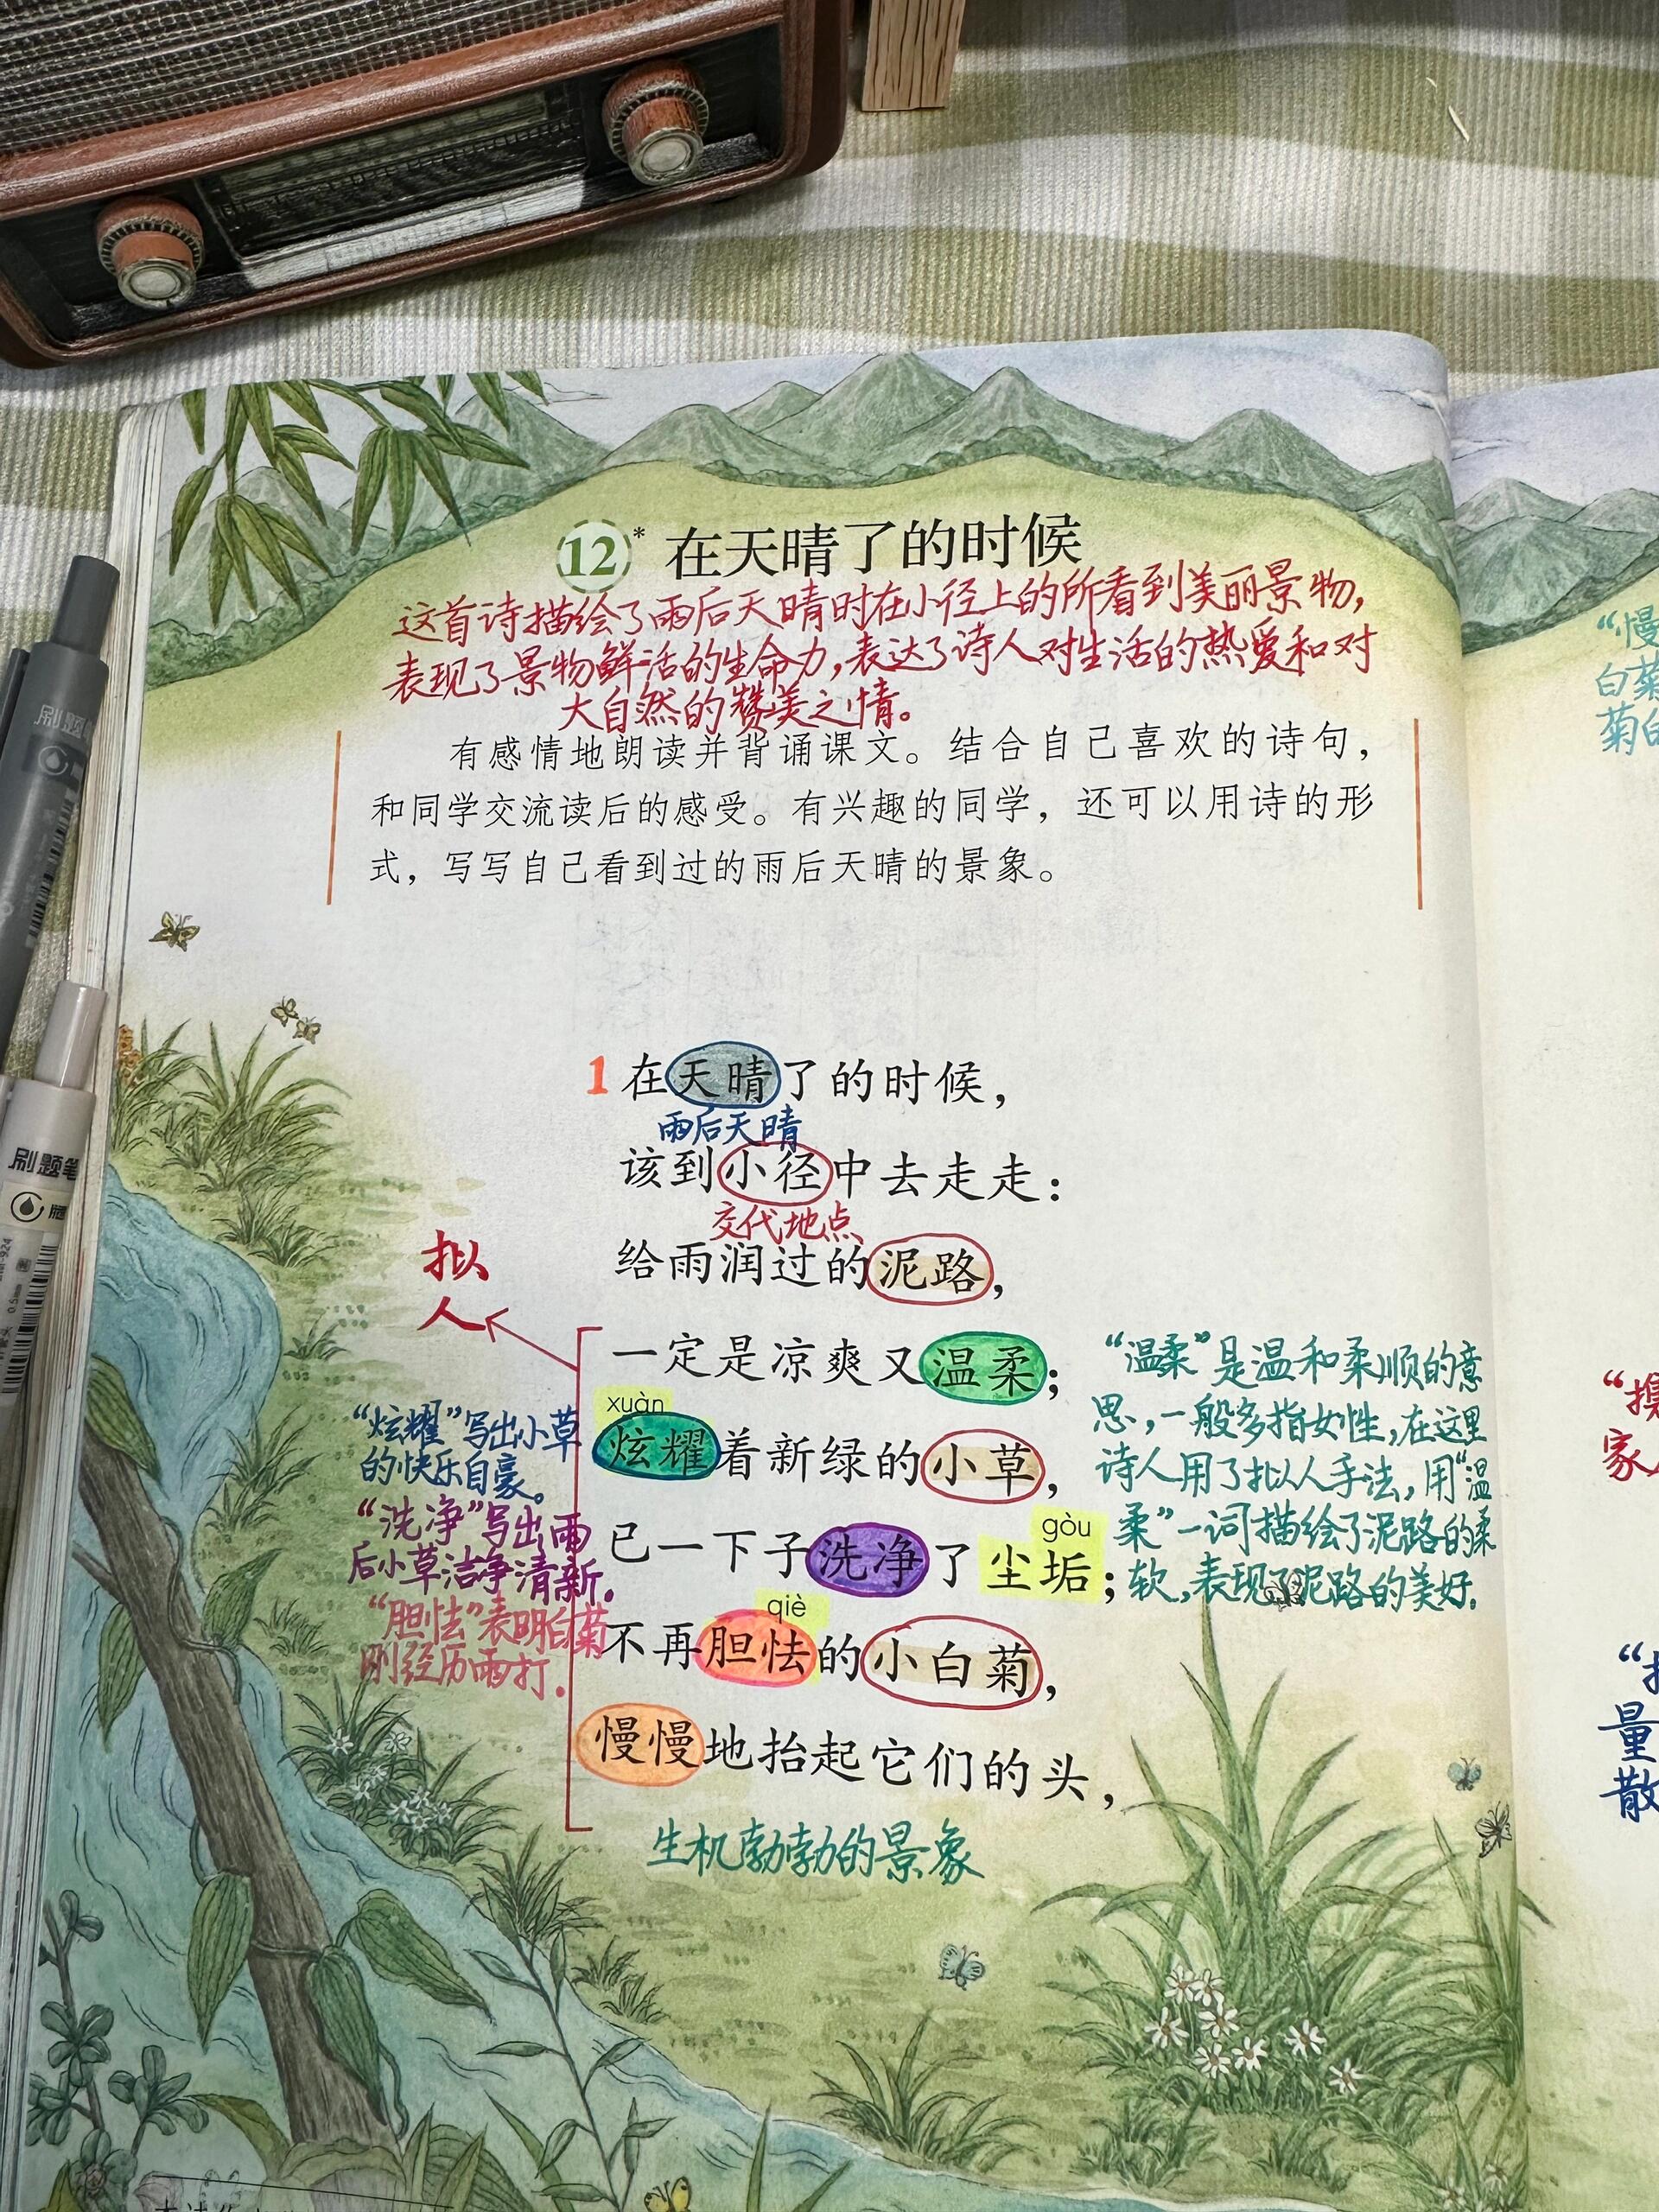 12* 在天晴了的时候
这首诗描绘了雨后天晴时在小径上的所看到美丽景物,
表现了景物鲜活的生命力,表达了诗人对生活的热爱和对
大自然的赞美之情。
有感情地朗读并背诵课文。结合自己喜欢的诗句，
和同学交流读后的感受。有兴趣的同学，还可以用诗的形
式，写写自己看到过的雨后天晴的景象。
1 在天晴了的时候，
雨后天晴
该到小径中去走走：
交代地点
给雨润过的泥路，
拟
人
一定是凉爽又温柔；
xuàn
炫耀着新绿的小草，
gòu
已一下子洗净了尘垢；
qiè
不再胆怯的小白菊，
慢慢地抬起它们的头，
生机勃勃的景象
“炫耀”写出小草
的快乐自豪。
“洗净”写出雨
后小草洁净清新.
“胆怯”表明白菊
刚经历雨打.
“温柔”是温和柔顺的意
思,一般多指女性,在这里
诗人用了拟人手法,用“温
柔”一词描绘了泥路的柔
软,表现了泥路的美好.
“慢
白菊
菊白
家
量
散
刷题
刷题笔
0.5mm